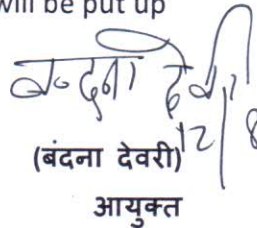 will be put up
वन्दना देवरी
12/8
(बंदना देवरी)
आयुक्त